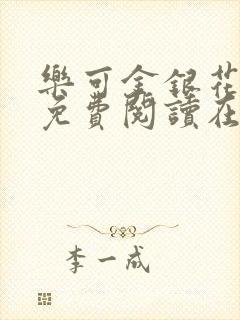 樂可金銀花
免費閱讀在
李一成